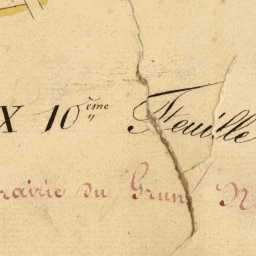 X 10ème Feuille
rairie du Grun